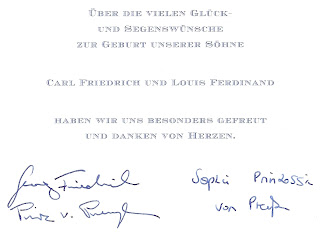 ÜBER DIE VIELEN GLÜCK-
UND SEGENSWÜNSCHE
ZUR GEBURT UNSERER SÖHNE
CARL FRIEDRICH UND LOUIS FERDINAND
HABEN WIR UNS BESONDERS GEFREUT
UND DANKEN VON HERZEN.
Georg Friedrich
Prinz v. Preußen
Sophie Prinzessin
von Preußen